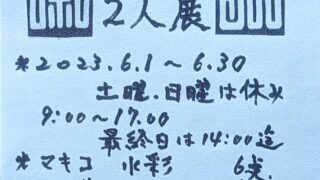 2人展
*2023.6.1~6.30
土曜.日曜は休み
9:00~17.00
最終日は14:00迄
*マキコ 水彩 6点